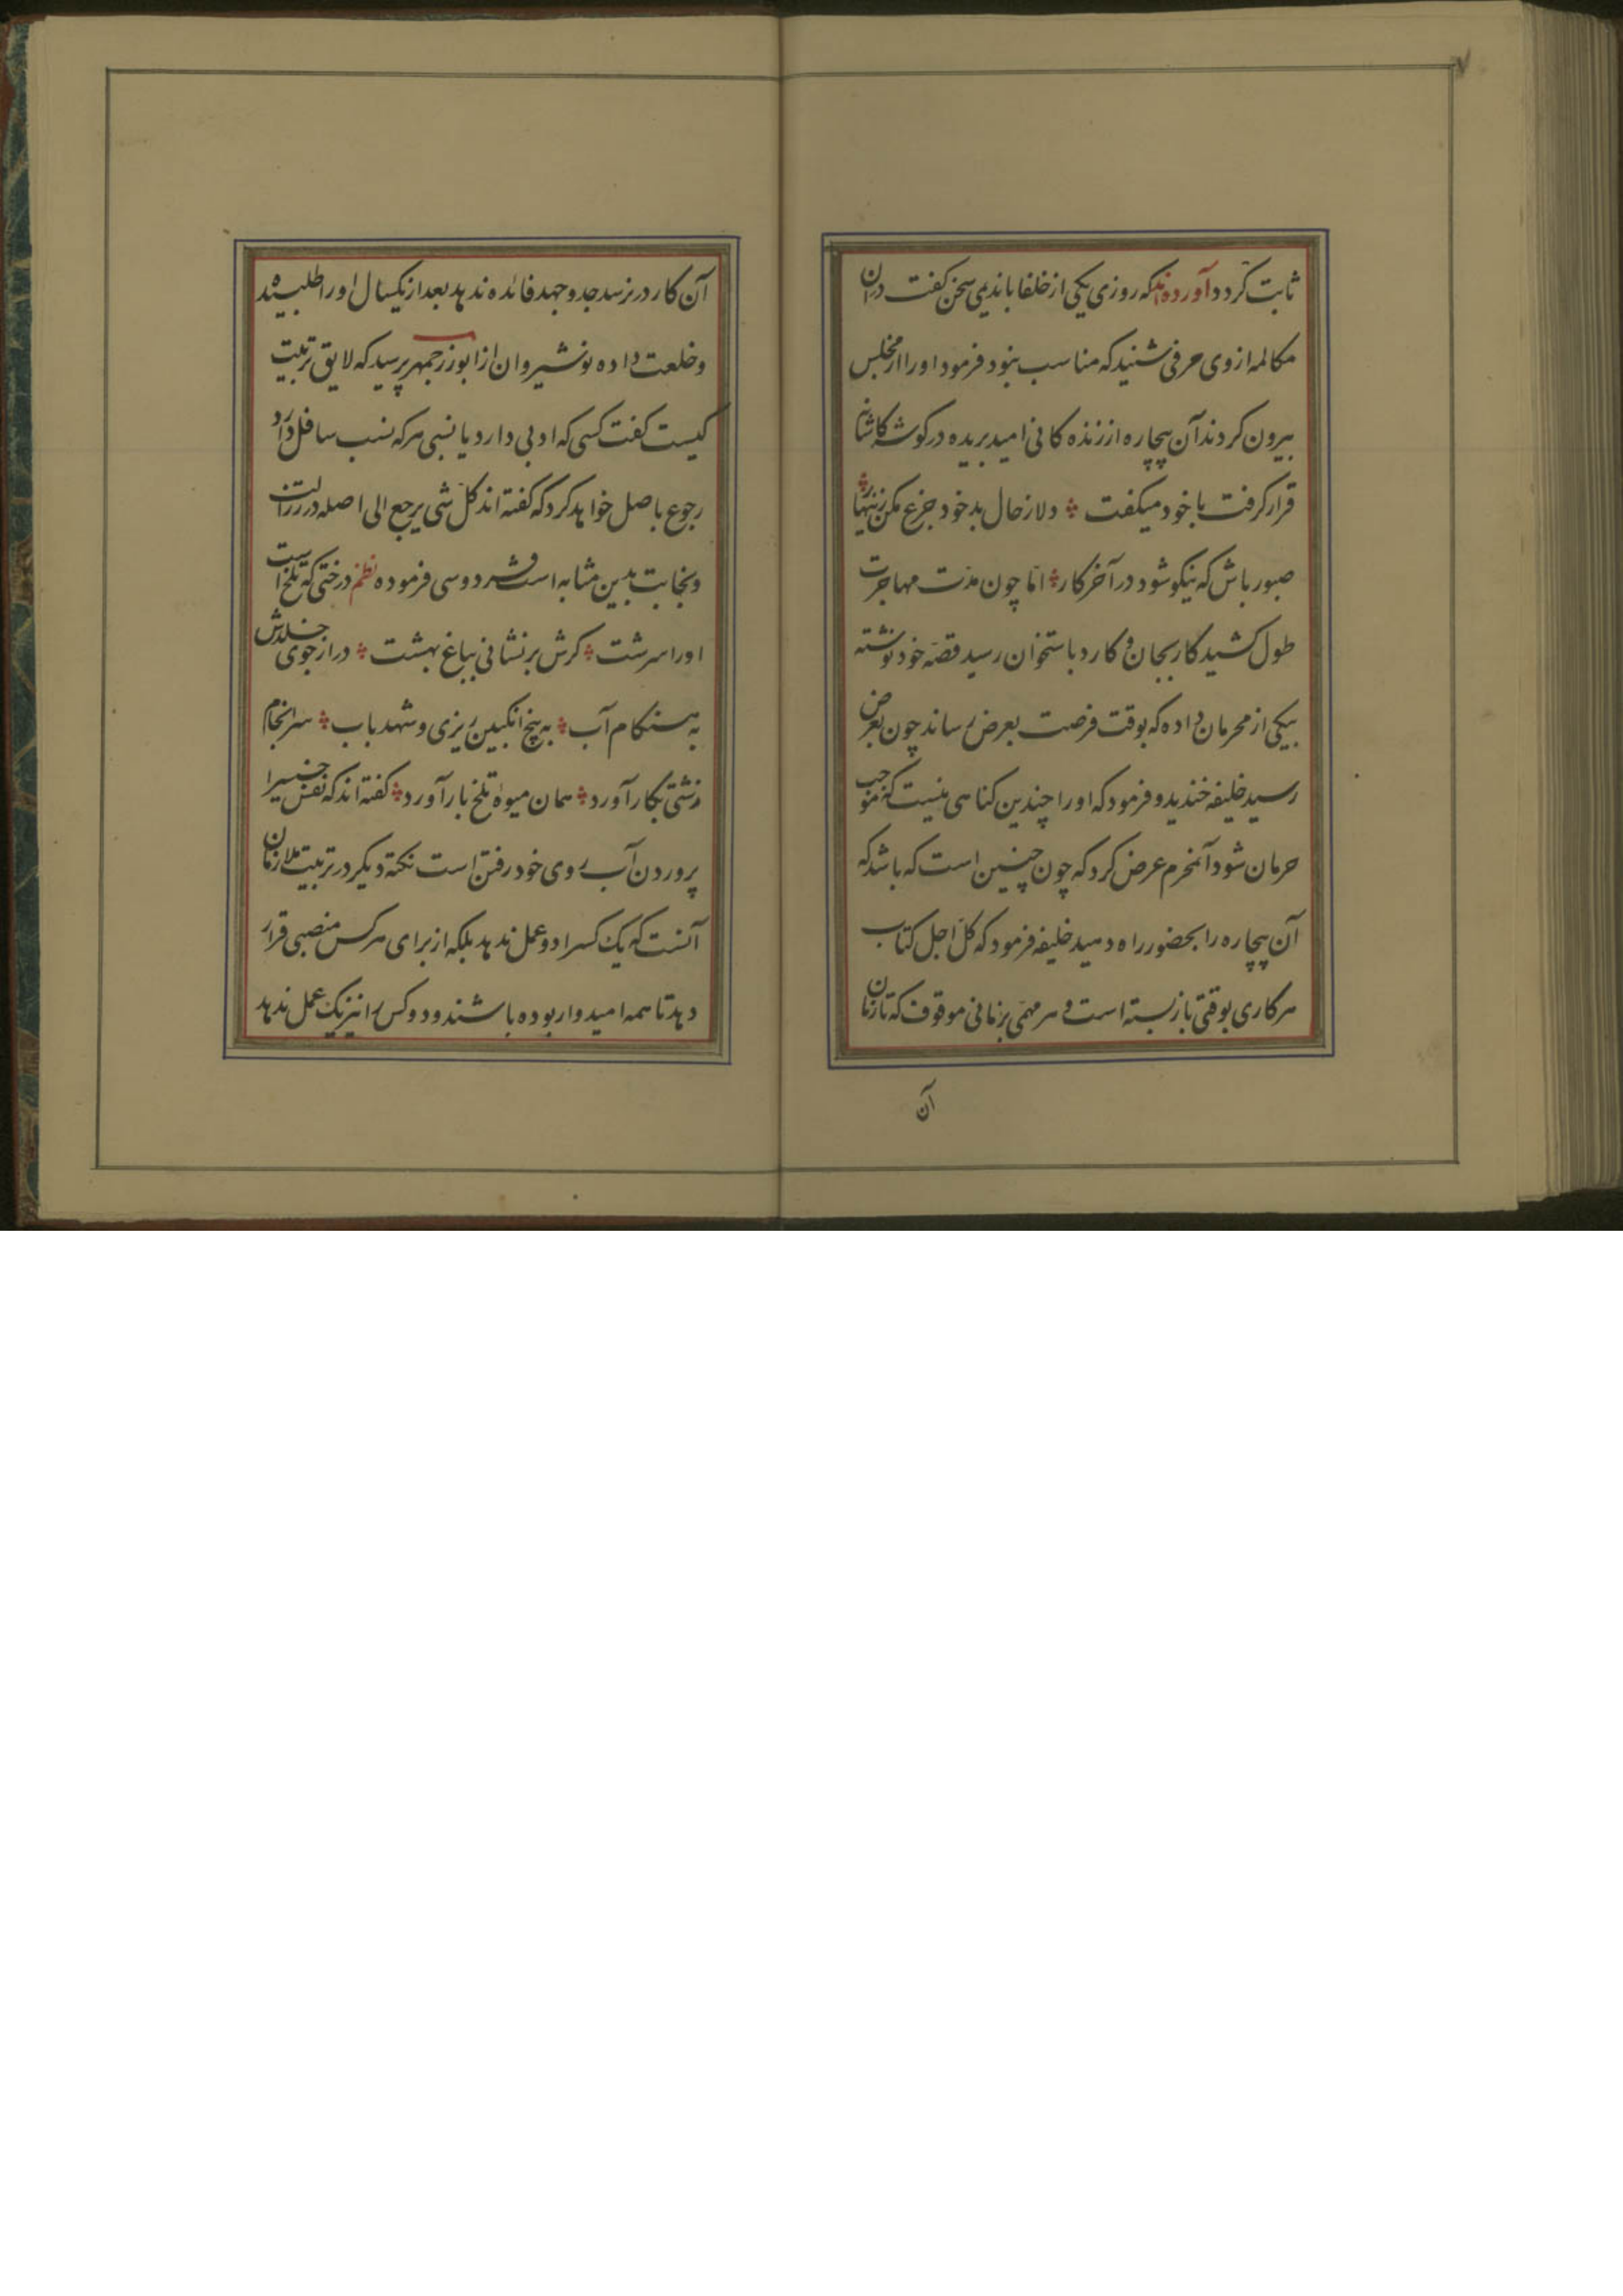 ۷
ثابت گردد آورده‌اند که روزی یکی از خلفا با ندیمی سخن گفت در آن
مکالمه از وی حرفی شنید که مناسب نبود فرمود او را از مجلس
بیرون کردند آن بیچاره از زنده کانی امید بریده در گوشه کاشانه
قرار گرفت با خود میگفت دلا ز حال بد خود جزع مکن زنهار
صبور باش که نیکو شود در آخر کار امّا چون مدّت مهاجرت
طول کشید کار بجان و کارد باستخوان رسید قصّه خود نوشته
بیکی از محرمان داده که بوقت فرصت بعرض رساند چون بعرض
رسید خلیفه خندید و فرمود که او را چندین کناهی نیست که موجب
حرمان شود آنمحرم عرض کرد که چون چنین است که باشد که
آن بیچاره را بحضور راه دهید خلیفه فرمود که کلّ اجل کتاب
هر کاری بوقتی باز بسته است و هر مهمّی بزمانی موقوف که تا زمان
آن
آن کار در نرسد جد و جهد فائده ندهد بعد از یکسال او را طلبیده
و خلعت داده نوشیروان از ابوزرجمهر پرسید که لایق تربیت
کیست گفت کسی که ادبی دارد یا نسبی هر که نسب سافل دارد
رجوع باصل خواهد کرد که گفته اند کلّ شی یرجع الی اصله در رزالت
و نجابت بدین مثابه است فردوسی فرموده نظم درختی که تلخ است
او را سرشت کرش برنشانی بباغ بهشت در از جوی خلدش
به هنکام آب به بیخ انکبین ریزی و شهد باب سرانجام
زشتی بکار آورد همان میوهٔ تلخ بار آورد گفته اند که نفس خسیرا
پروردن آب روی خود رفتن است نکته دیکر در تربیت ملازمان
آنست که یک کسرا دو عمل ندهد بلکه از برای هر کس منصبی قرار
دهد تا همه امیدوار بوده باشند و دو کس را نیز یک عمل ندهد